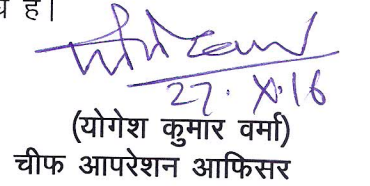 है।
27.XI.16
(योगेश कुमार वर्मा)
चीफ आपरेशन आफिसर